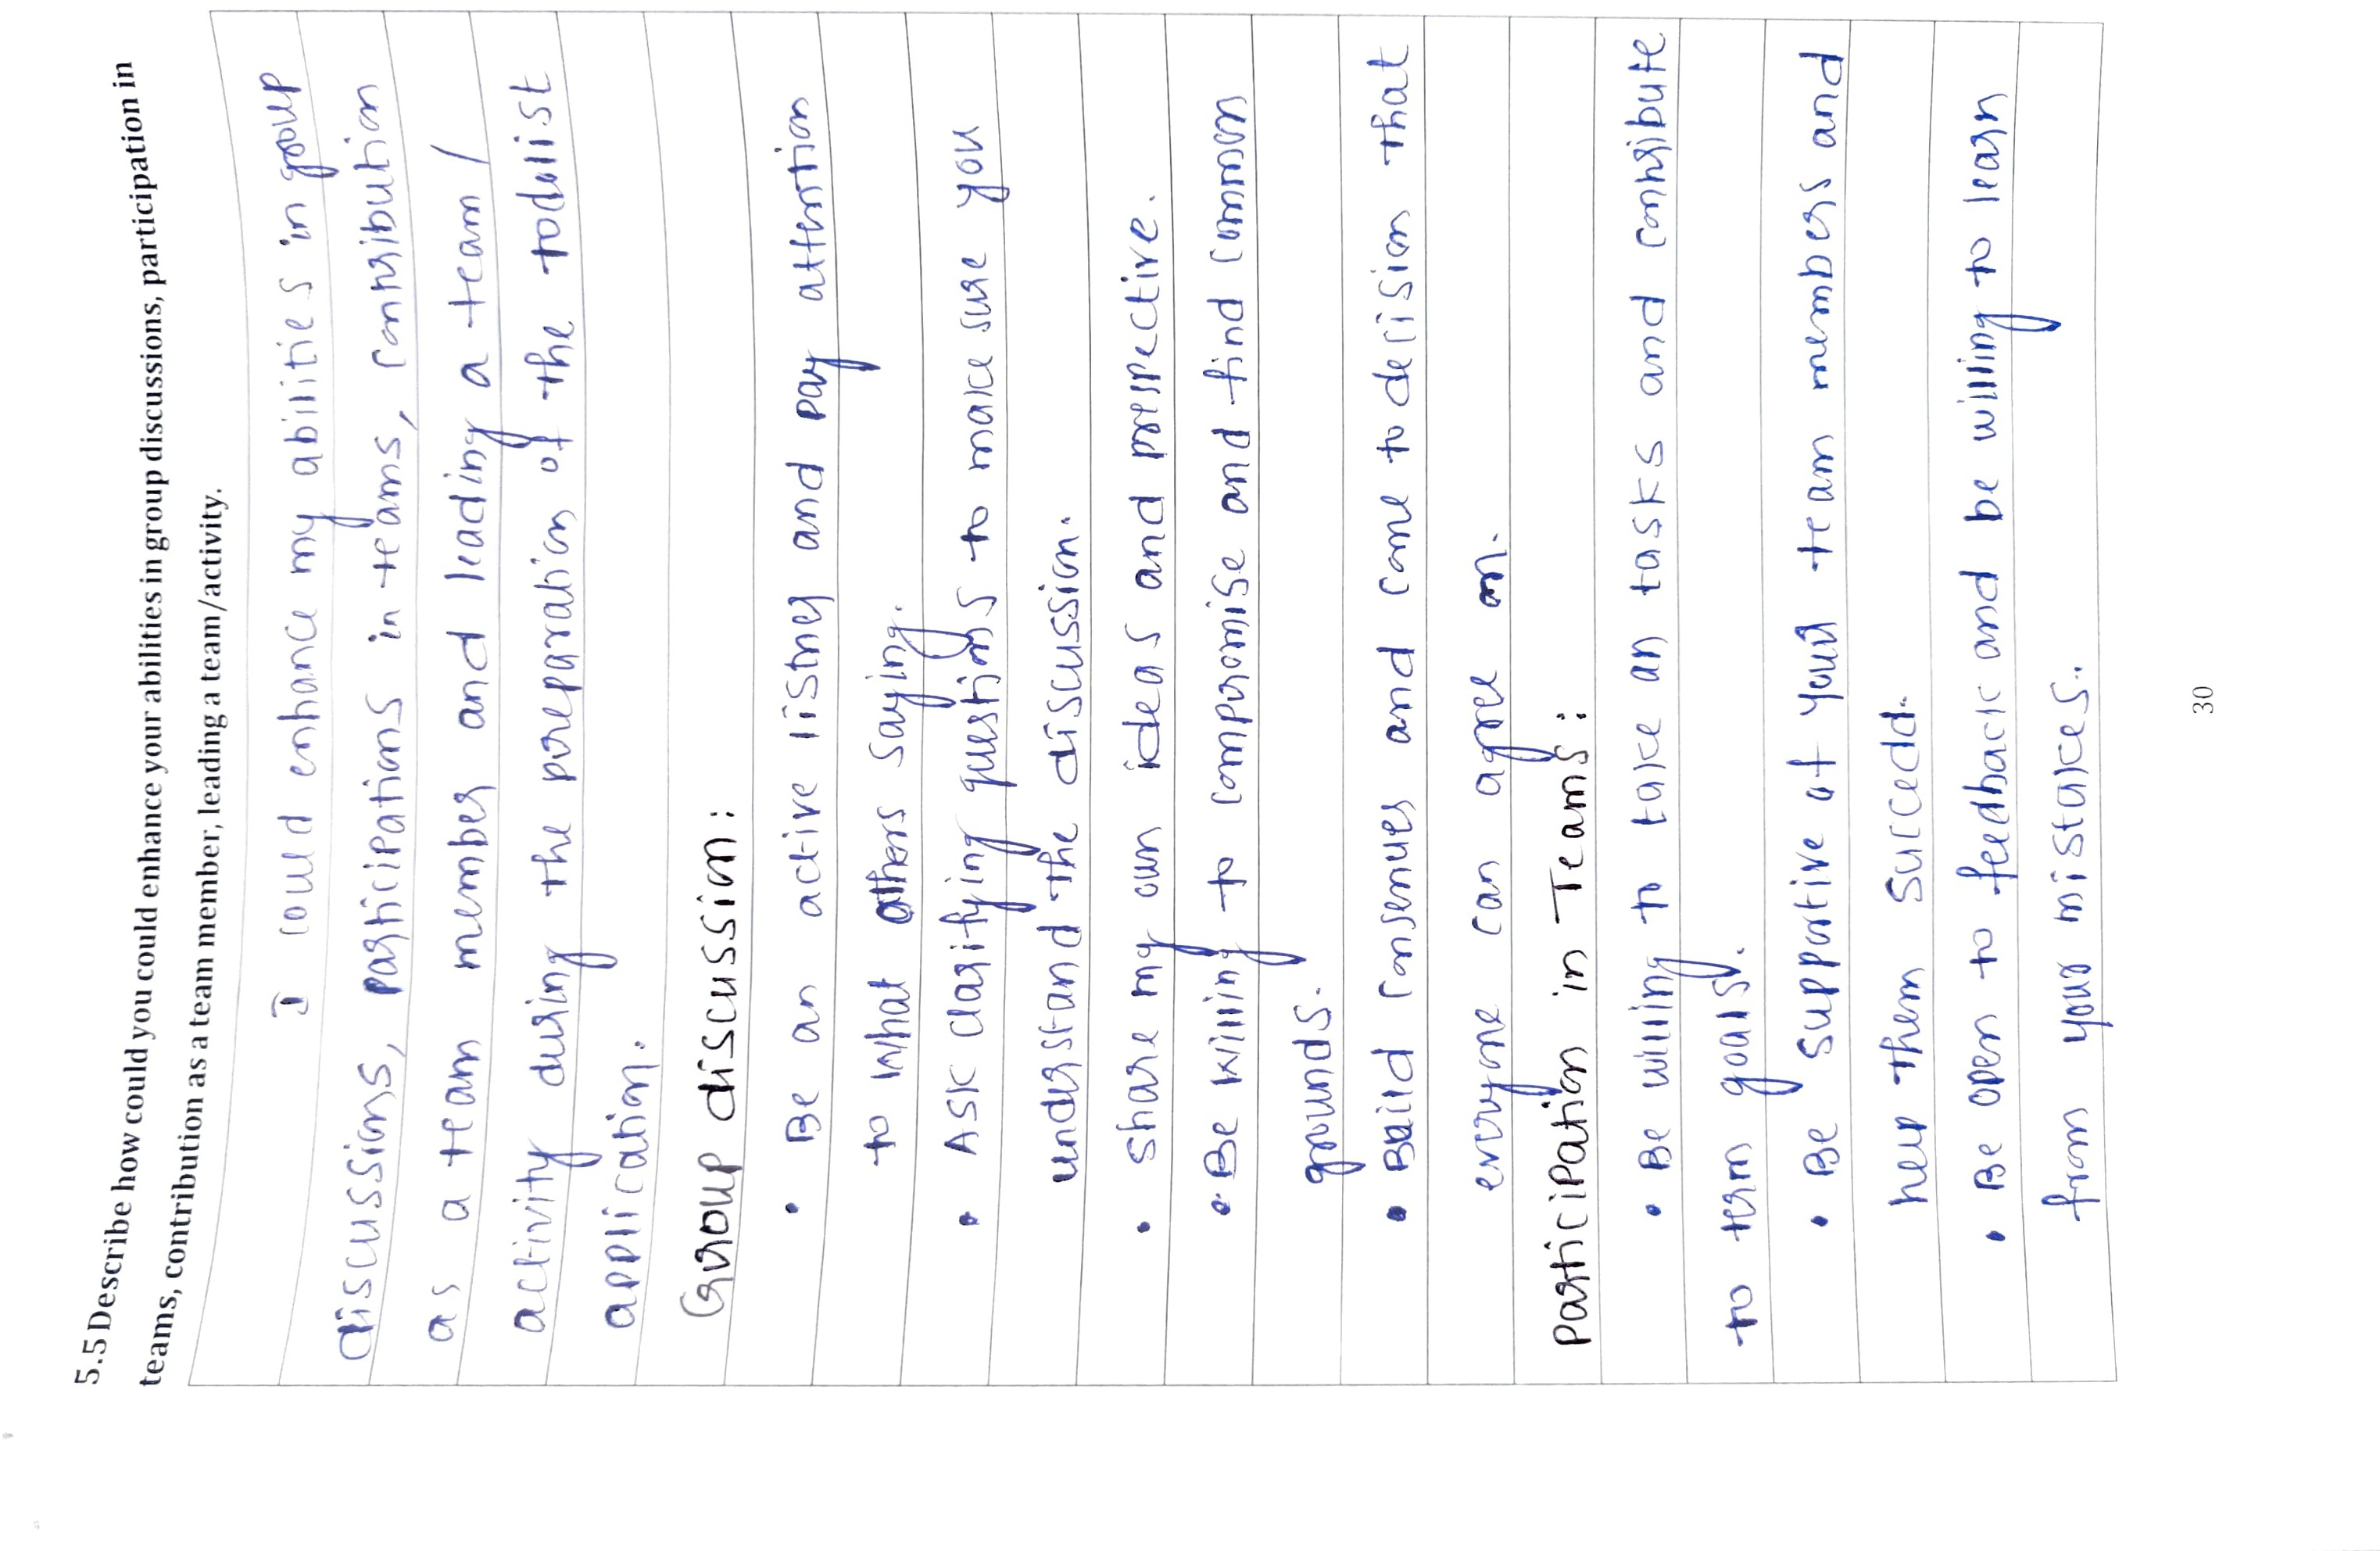 5.5 Describe how could you could enhance your abilities in group discussions, participation in
teams, contribution as a team member, leading a team/activity.
I could enhance my abilities in group
discussions, participations in teams, contribution
as a team member and leading a team /
activity during the preparation of the todolist
application.
Group discussion:
• Be an active listner and pay attention
to what others saying.
• Ask clarifying questions to make sure you
understand the discussion.
• share my own ideas and prespective.
• Be willing to compromise and find common
grounds.
• Build consenues and come to decision that
everyone can agree on.
Participation in Teams:
• Be willing to take on tasks and contribute
to term goals.
• Be supportive of your team members and
help them succed.
• Be open to feedback and be willing to learn
from your mistakes.
30